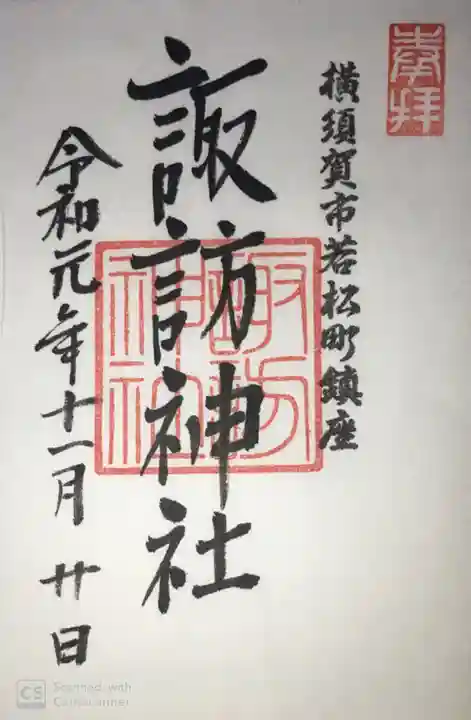 奉拝
横須賀市若松町鎮座
諏訪神社
諏訪神社
令和元年十一月廿日
CS Scanned with
CamScanner